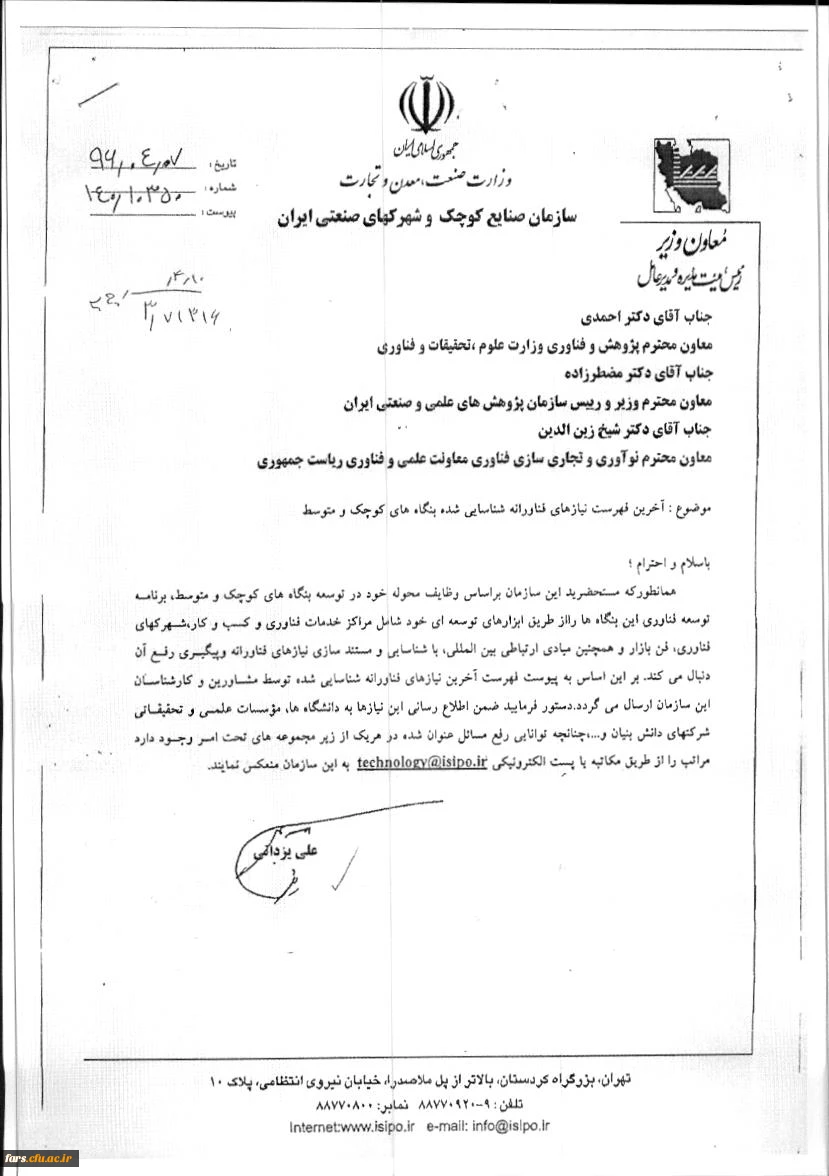 جمهوری اسلامی ایران
وزارت صنعت، معدن و تجارت
سازمان صنایع کوچک و شهرکهای صنعتی ایران
تاریخ: ۹۶,۰۴,۰۷
شماره: ۱۴۰,۱۰,۳۵۰
پیوست:
معاون وزیر
رئیس هیئت مدیره و مدیرعامل
۳,۷۱۳۱۶
جناب آقای دکتر احمدی
معاون محترم پژوهش و فناوری وزارت علوم ،تحقیقات و فناوری
جناب آقای دکتر مضطرزاده
معاون محترم وزیر و رییس سازمان پژوهش های علمی و صنعتی ایران
جناب آقای دکتر شیخ زین الدین
معاون محترم نوآوری و تجاری سازی فناوری معاونت علمی و فناوری ریاست جمهوری
موضوع : آخرین فهرست نیازهای فناورانه شناسایی شده بنگاه های کوچک و متوسط
باسلام و احترام ؛
همانطورکه مستحضرید این سازمان براساس وظایف محوله خود در توسعه بنگاه های کوچک و متوسط، برنامه
توسعه فناوری این بنگاه ها رااز طریق ابزارهای توسعه ای خود شامل مراکز خدمات فناوری و کسب و کار،شهرکهای
فناوری، فن بازار و همچنین مبادی ارتباطی بین المللی، با شناسایی و مستند سازی نیازهای فناورانه وپیگیری رفع آن
دنبال می کند. بر این اساس به پیوست فهرست آخرین نیازهای فناورانه شناسایی شده توسط مشاورین و کارشناسان
این سازمان ارسال می گردد.دستور فرمایید ضمن اطلاع رسانی این نیازها به دانشگاه ها، مؤسسات علمی و تحقیقاتی
شرکتهای دانش بنیان و...،چنانچه توانایی رفع مسائل عنوان شده در هریک از زیر مجموعه های تحت امر وجود دارد
مراتب را از طریق مکاتبه یا پست الکترونیکی technology@isipo.ir به این سازمان منعکس نمایند.
علی یزدانی
تهران، بزرگراه کردستان، بالاتر از پل ملاصدرا، خیابان نیروی انتظامی، پلاک ۱۰
تلفن: ۹-۸۸۷۷۰۹۲۰ نمابر: ۸۸۷۷۰۸۰۰
Internet:www.isipo.ir e-mail: info@isipo.ir
fars.cfu.ac.ir